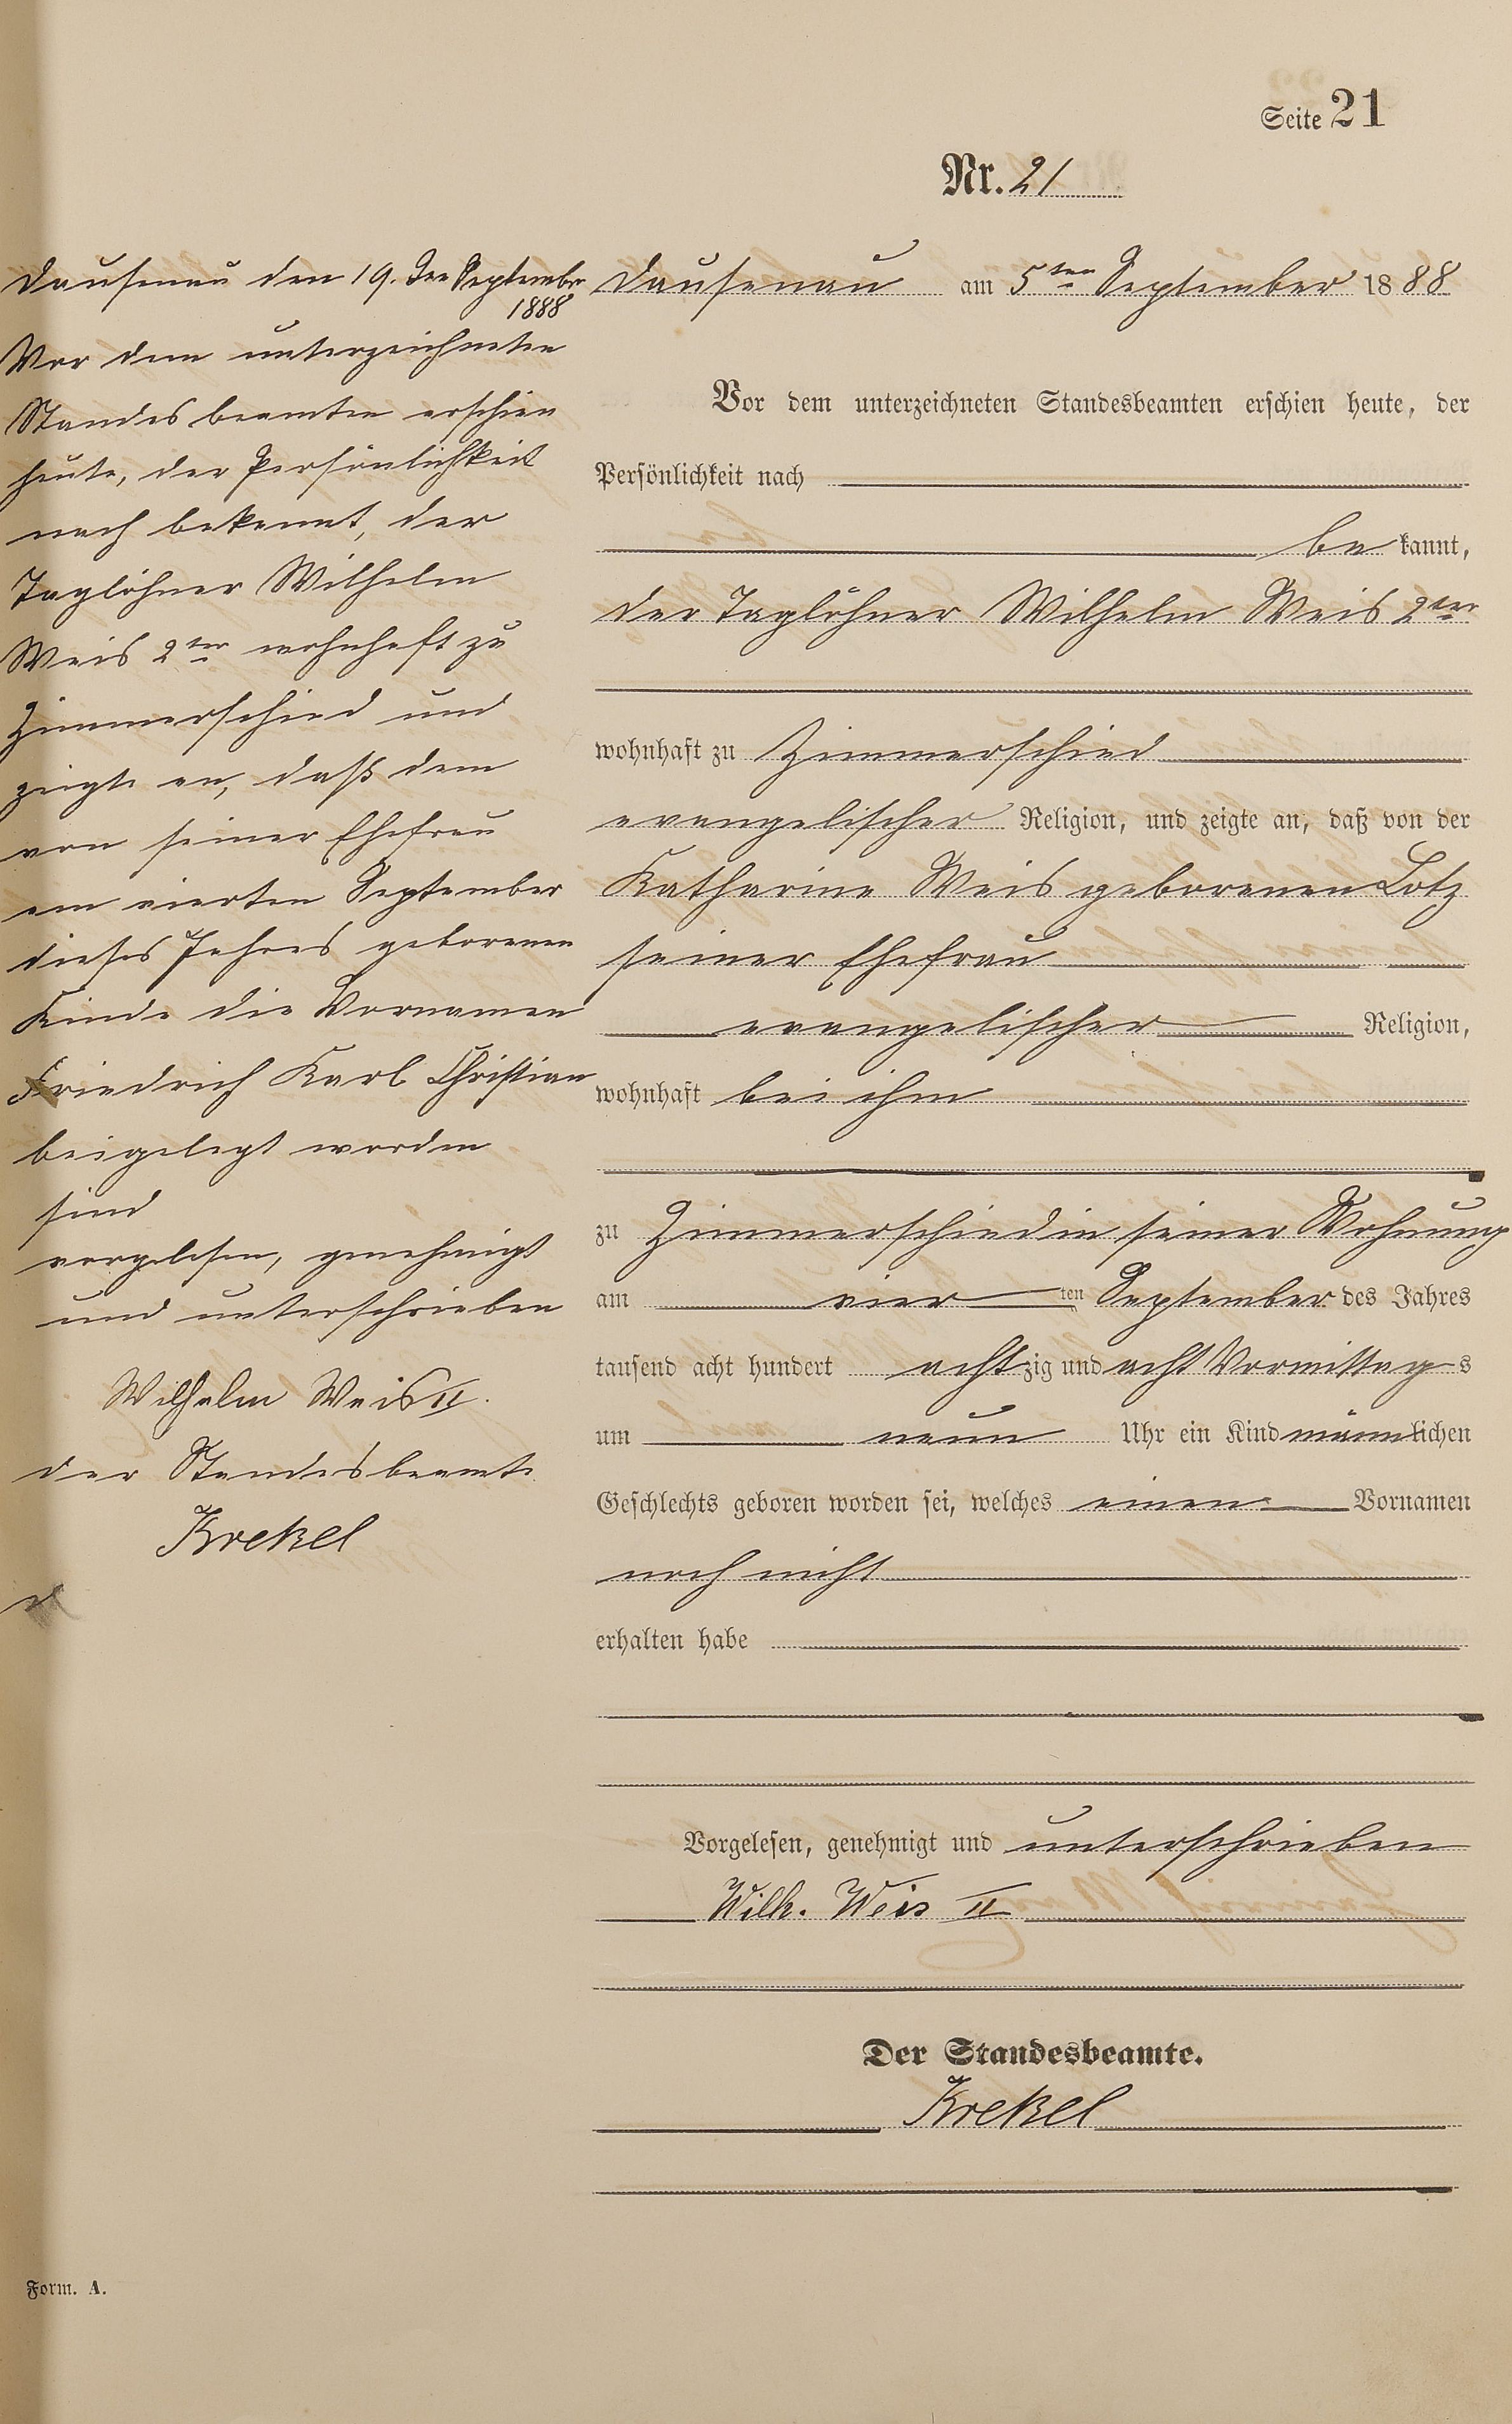 Seite 21
Nr. 21
Dausenau den 19. ten September
1888
Vor dem unterzeichneten
Standesbeamten erschien
heute, der Persönlichkeit
nach bekannt, der
Taglöhner Wilhelm
Weis 2ter wohnhaft zu
Zimmerschied und
zeigte an, daß dem
von seiner Ehefrau
am vierten September
dieses Jahres geborenen
Kinde die Vornamen
Friedrich Karl Christian
beigelegt worden
sind
vorgelesen, genehmigt
und unterschrieben
Wilhelm Weis II.
der Standesbeamte
Krekel
Dausenau am 5ten September 1888
Vor dem unterzeichneten Standesbeamten erschien heute, der
Persönlichkeit nach
be kannt,
der Taglöhner Wilhelm Weis 2ter
wohnhaft zu Zimmerschied
evangelischer Religion, und zeigte an, daß von der
Katharine Weis geborenen Lotz
seiner Ehefrau
evangelischer Religion,
wohnhaft bei ihm
zu Zimmerschied in seiner Wohnung
am vier ten September des Jahres
tausend acht hundert achtzig und acht Vormittags
um neun Uhr ein Kind männlichen
Geschlechts geboren worden sei, welches einen Vornamen
noch nicht
erhalten habe
Vorgelesen, genehmigt und unterschrieben
Wilh. Weis II
Der Standesbeamte.
Krekel
Form. A.